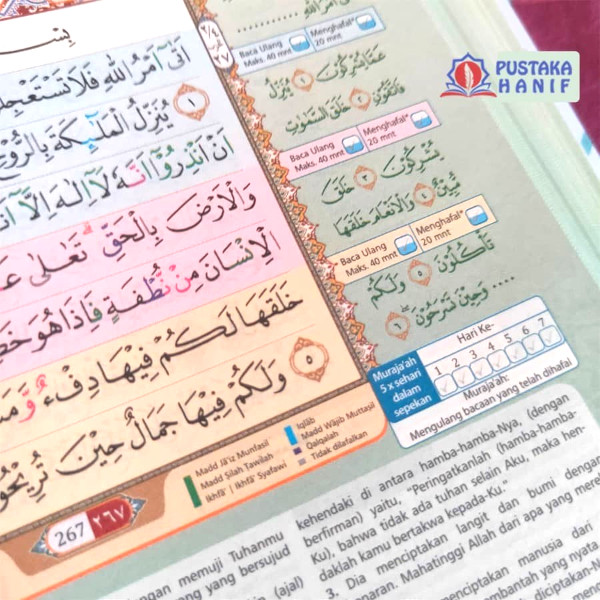 PUSTAKA
HANIF
اَتٰىٓ اَمْرُ اللّٰهِ فَلَا تَسْتَعْجِلُ
١ يُنَزِّلُ الْمَلٰۤىِٕكَةَ بِالرُّوْحِ
اَنْ اَنْذِرُوْٓا اَنَّهٗ لَآ اِلٰهَ اِلَّآ
وَالْاَرْضَ بِالْحَقِّۗ تَعٰلٰى
الْاِنْسَانَ مِنْ نُّطْفَةٍ فَاِذَا هُوَ
خَلَقَهَا لَكُمْ فِيْهَا دِفْءٌ وَّ
٥ وَلَكُمْ فِيْهَا جَمَالٌ حِيْنَ
Baca Ulang
Maks. 40 mnt
Menghafal*
20 mnt
عَمَّا يُشْرِكُوْنَ ١ يُنَزِّلُ
فَاتَّقُوْنِ ٢ خَلَقَ السَّمٰوٰتِ
Baca Ulang
Maks. 40 mnt
Menghafal*
20 mnt
يُشْرِكُوْنَ ٣ خَلَقَ
مُّبِيْنٌ ٤ وَالْاَنْعَامَ خَلَقَهَا
Baca Ulang
Maks. 40 mnt
Menghafal*
20 mnt
تَأْكُلُوْنَ ٥ وَلَكُمْ
وَحِيْنَ تَسْرَحُوْنَ ٦ ....
Muraja'ah
5 x sehari
dalam
sepekan
Hari Ke-
1 2 3 4 5 6 7
Muraja'ah:
Mengulang bacaan yang telah dihafal
Madd Jā'iz Munfasil
Madd Silah Tawilah
Ikhfā' | Ikhfā' Syafawi
Iqlāb
Madd Wājib Muttasil
Qalqalah
Tidak dilafalkan
267 ٢٦٧
kehendaki di antara hamba-hamba-Nya, (dengan
berfirman) yaitu, "Peringatkanlah (hamba-hamba-
Ku), bahwa tidak ada tuhan selain Aku, maka hen-
daklah kamu bertakwa kepada-Ku."
3. Dia menciptakan langit dan bumi dengan
benaran. Mahatinggi Allah dari apa yang
menciptakan manusia dari
pembantah yang nyata.
diciptakan-N
dengan memuji Tuhanmu
yang bersujud
(ajal)